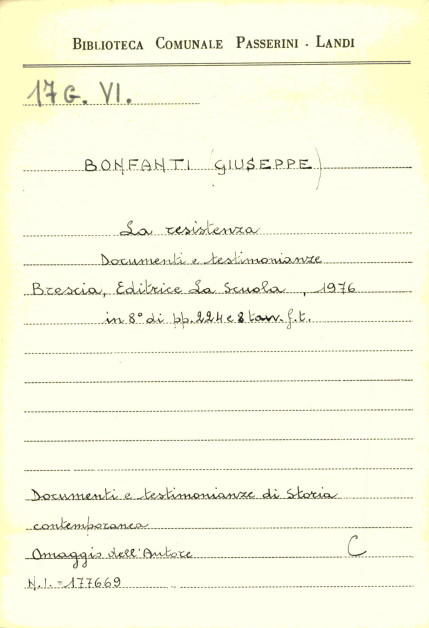 BIBLIOTECA COMUNALE PASSERINI - LANDI
17 G. VI.
BONFANTI (GIUSEPPE)
La resistenza
Documenti e testimonianze
Brescia, Editrice La Scuola, 1976
in 8° di pp. 224 e 8 tavv. f.t.
Documenti e testimonianze di Storia
contemporanea
Omaggio dell'Autore C
N.I. = 177669